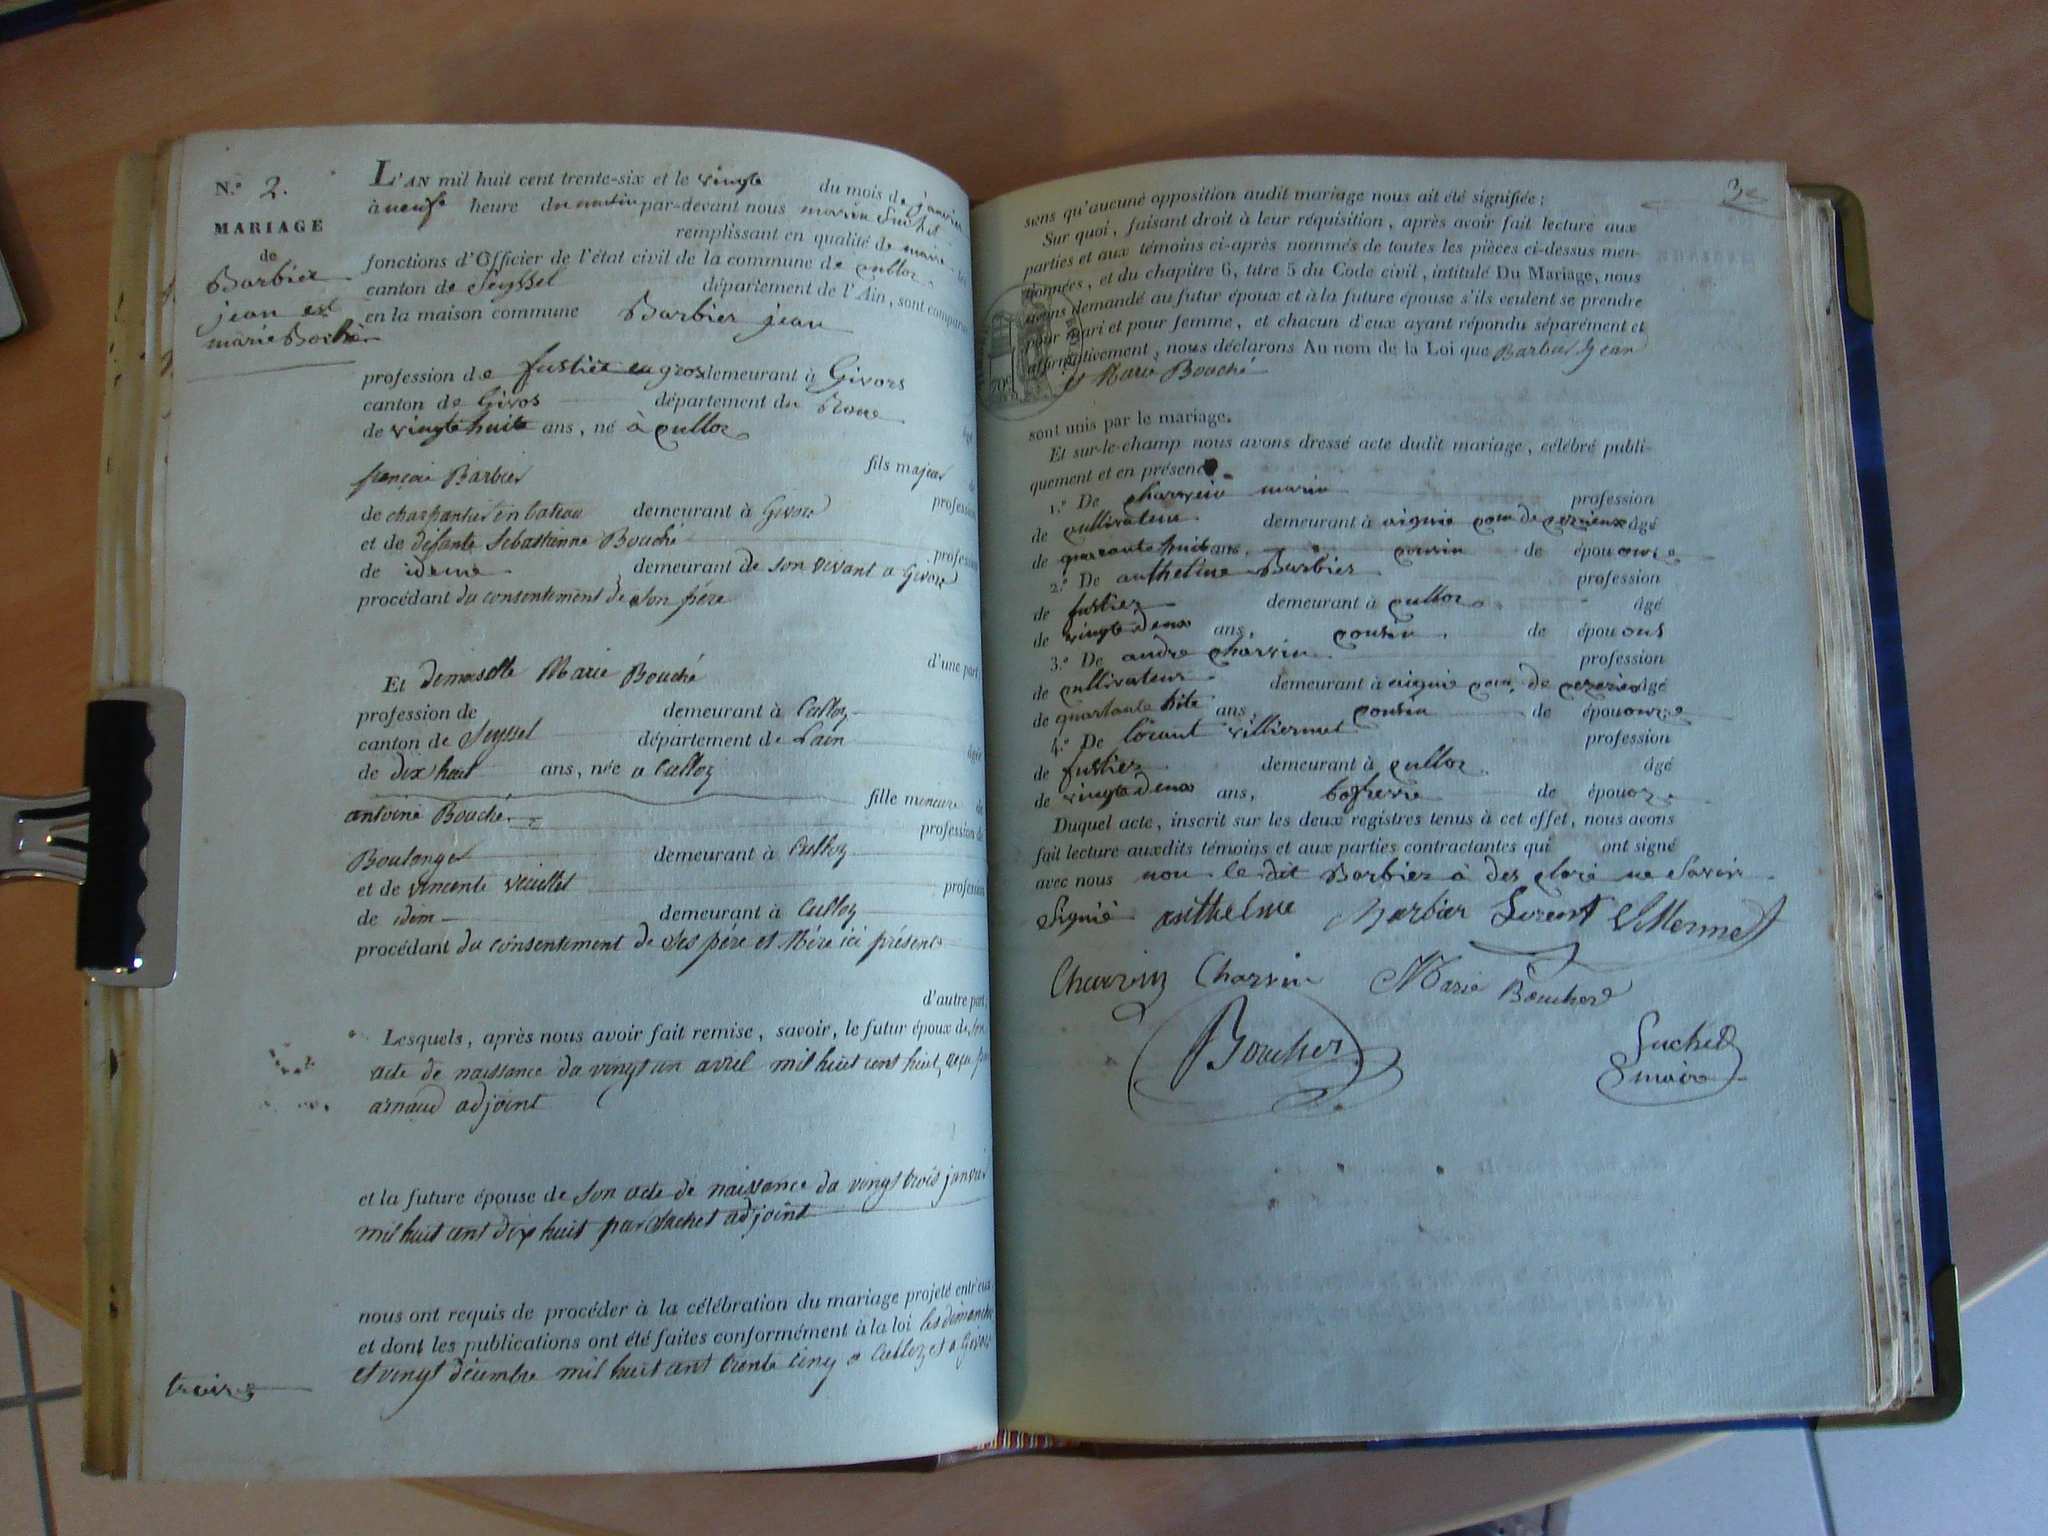 N.º 2.
MARIAGE
de
Barbier
jean est
marie Boché
L'AN mil huit cent trente-six et le vingte du mois de janvier
à neufe heure du matin par-devant nous marin Suchet
remplissant en qualité de maire les
fonctions d'Officier de l'état civil de la commune de culloz
canton de Seyssel département de l'Ain, sont comparus
en la maison commune Barbier jean
profession de fustier en gros demeurant à Givors
canton de Givos département du Rone
âgé
de vingte huite ans, né à culloz
fils majeur de
françois Barbier
profession
de charpantier en bateau demeurant à Givors
et de défante Sébastianne Bouché
profession
de ideme demeurant de son vivant a Givors
procédant du consentiment de son père
d'une part
Et demoiselle Marie Bouché
profession de demeurant à Culloz
canton de Seyssel département de Lain
âgée
de dix huit ans, née a Culloz
fille mineure de
antoine Bouché
profession de
Boulanger demeurant à Culloz
et de vincente veuillet
profession
de idem demeurant à Culloz
procédant du consentement de ses père et Mère ici présents
d'autre part,
Lesquels, après nous avoir fait remise, savoir, le futur époux de son
acte de naissance du vingt un avril mil huit cent huit, reçu par
arnaud adjoint
et la future épouse de Son acte de naissance du vingt trois janvier
mil huit cent dix huit par Suchet adjoint
nous ont requis de procéder à la célébration du mariage projeté entr'eux
et dont les publications ont été faites conformément à la loi les dimanche
treize
et vingt décembre mil huit cent trente cinq a Culloz et a Givors
32
sens qu'aucune opposition audit mariage nous ait été signifiée;
Sur quoi, faisant droit à leur réquisition, après avoir fait lecture aux
parties et aux témoins ci-après nommés de toutes les pièces ci-dessus men-
données, et du chapitre 6, titre 5 du Code civil, intitulé Du Mariage, nous
avons demandé au futur époux et à la future épouse s'ils veulent se prendre
pour mari et pour femme, et chacun d'eux ayant répondu séparément et
affirmativement, nous déclarons Au nom de la Loi que Barbier Jean
et Marie Bouché
sont unis par le mariage.
Et sur-le-champ nous avons dressé acte dudit mariage, célébré publi-
quement et en présence
1.º De charvein marin profession
de cullivateur demeurant à aignie com de cezrieux âgé
de quarante huit ans, cousin de épououze
2.º De anthelme Barbier profession
de fustier demeurant à culloz âgé
de vingte deux ans, cousin de épouous
3.º De andre charvin profession
de cullivateur demeurant à aignie com de cezrieu âgé
de quartante hite ans, cousin de épououze
4.º De lorant villiermet profession
de fustier demeurant à culloz âgé
de vingte deux ans, bofrerre de épouoz
Duquel acte, inscrit sur les deux registres tenus à cet effet, nous avons
fait lecture auxdits témoins et aux parties contractantes qui ont signé
avec nous non le dit Barbier à des claré ne Savoir
Signié anthelme Barbier Lorent Villermet
Charvin Charvin Marie Boucherd
Boucher
Suchet
maire